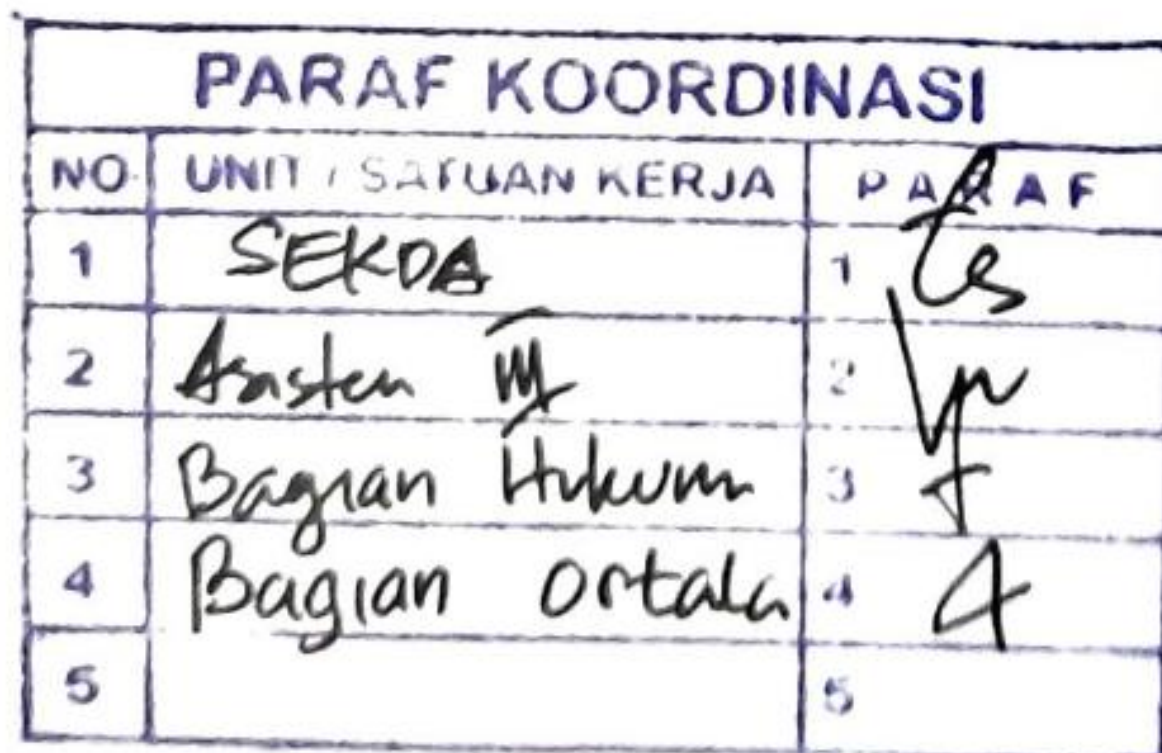 PARAF KOORDINASI
NO. UNIT / SATUAN KERJA PARAF
1 SEKDA 1
2 Asisten III 2
3 Bagian Hukum 3
4 Bagian Ortala 4
5 5